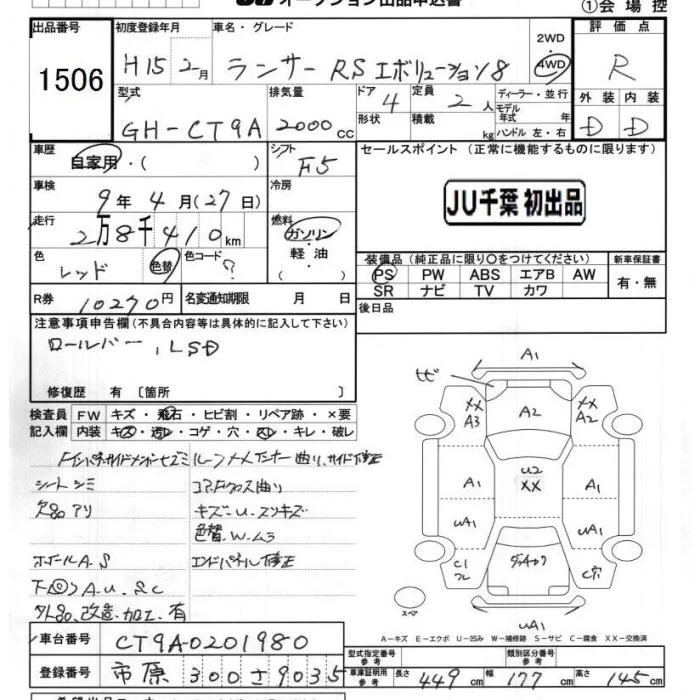 オークション出品申込書
①会場控
出品番号 初度登録年月 車名・グレード 評価点
1506 H15 2月 ランサー RS エボリューション8 2WD 4WD R
型式 排気量 ドア 定員 ディーラー・並行 外装 内装
GH-CT9A 2000cc 4 2人 モデル年式 年 D D
形状 積載 kg ハンドル 左・右
車歴 シフト セールスポイント (正常に機能するものに限ります)
自家用・( ) F5
車検 冷房
9年4月(27日) JU千葉 初出品
走行 燃料
2万8千410km ガソリン・軽油・( )
色 色替 色コード 装備品(純正品に限り○をつけてください) 新車保証書
レッド ? PS PW ABS エアB AW 有・無
SR ナビ TV カワ
R券 10270円 名変通知期限 月 日 後日品
注意事項申告欄(不具合内容等は具体的に記入して下さい)
ロールバー, LSD
修復歴 有 [箇所 ]
検査員 FW キズ・飛石・ヒビ割・リペア跡・×要
記入欄 内装 キズ・汚レ・コゲ・穴・スレ・キレ・破レ
シートシミ コアF.クロス曲り
欠品アリ キズ・U・スリキズ
色替.W.ムラ
ホイールA.S エンドパネル修正
下回りA.U.S.C
外品.改造.加工.有
A1
ヒビ
XX A3 A2 XX A2
U2 XX
A1 A1
UA1 UA1
C1 C穴
スペア
UA1
A-キズ E-エクボ U-凹み W-補修跡 S-サビ C-腐食 XX-交換済
車台番号 CT9A-0201980 型式指定番号 参考 類別区分番号 参考
登録番号 市原 300 さ 9035 車庫証明用 参考 長さ 449cm 幅 177cm 高さ 145cm